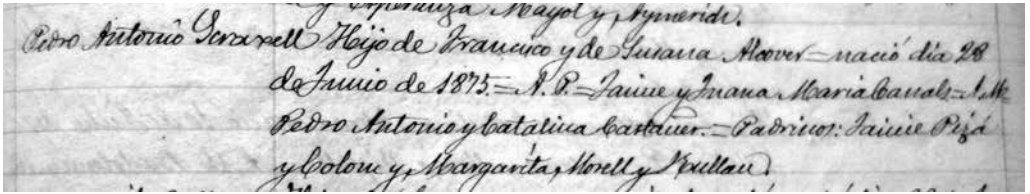 y Esperanza Mayol y Aymerich.
Pedro Antonio Scraxell Hijo de Francisco y de Susana Alcover = nació día 28
de Junio de 1875. = A. P. = Jaime y Juana Maria Canals = A. M.
Pedro Antonio y Catalina Castañer. = Padrinos: Jaime Pizá
y Colom y Margarita Morell y Rullan